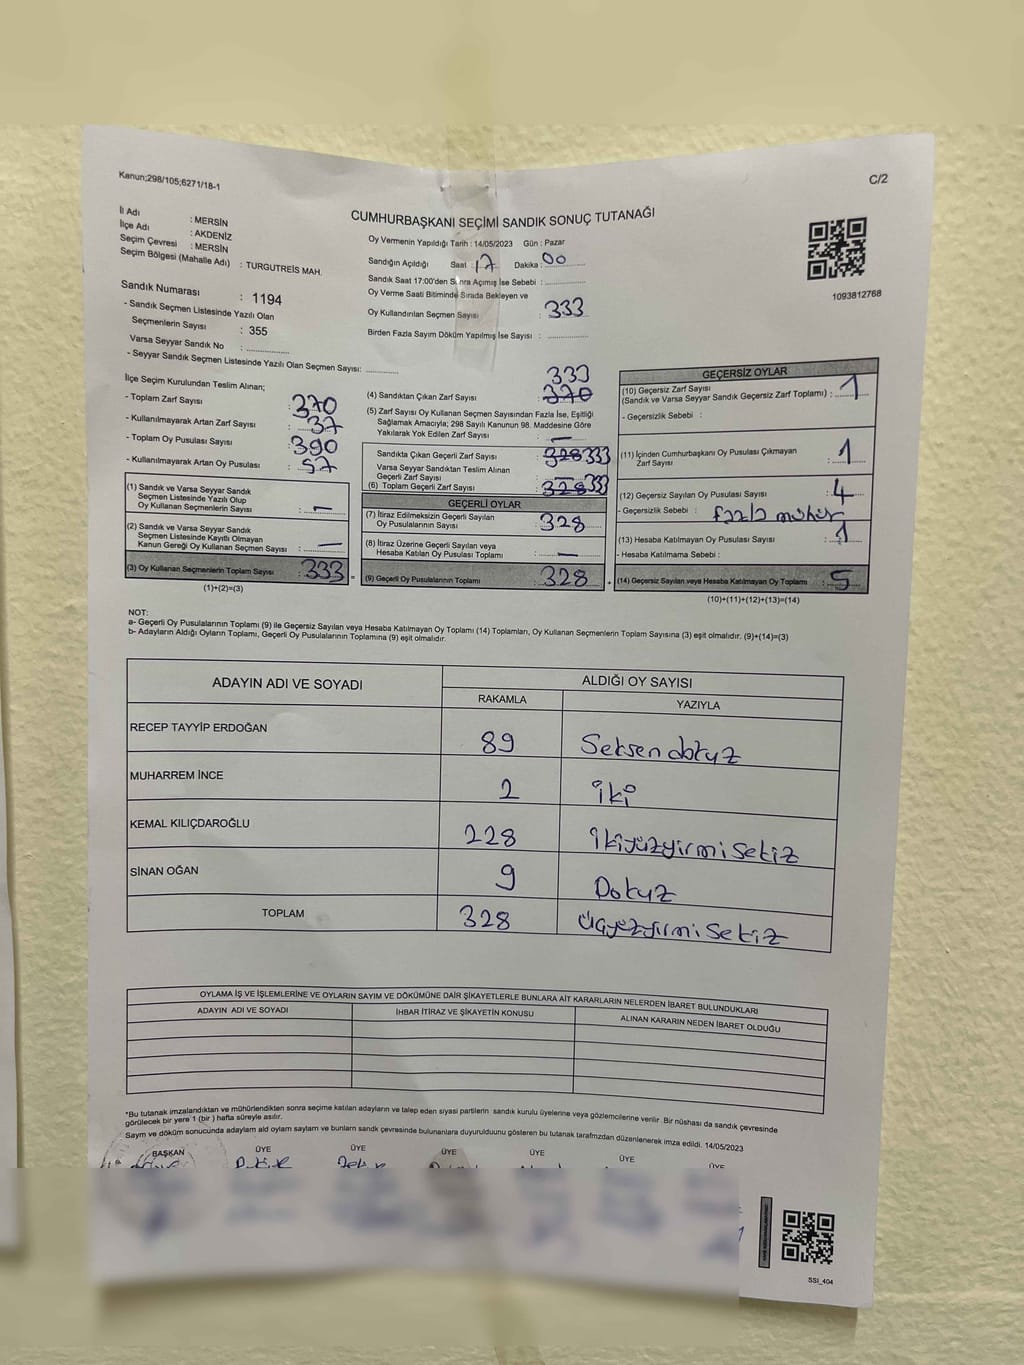 Kanun;298/105;6271/18-1
C/2
CUMHURBAŞKANI SEÇİMİ SANDIK SONUÇ TUTANAĞI
İl Adı : MERSİN
İlçe Adı : AKDENİZ
Seçim Çevresi : MERSİN
Seçim Bölgesi (Mahalle Adı) : TURGUTREİS MAH.
Sandık Numarası : 1194
- Sandık Seçmen Listesinde Yazılı Olan
Seçmenlerin Sayısı : 355
Varsa Seyyar Sandık No :
- Seyyar Sandık Seçmen Listesinde Yazılı Olan Seçmen Sayısı:
Oy Vermenin Yapıldığı Tarih : 14/05/2023 Gün : Pazar
Sandığın Açıldığı Saat : 17 Dakika : 00
Sandık Saat 17:00'den Sonra Açımış İse Sebebi :
Oy Verme Saati Bitiminde Sırada Bekleyen ve
Oy Kullandırılan Seçmen Sayısı : 333
Birden Fazla Sayım Döküm Yapılmış İse Sayısı :
1093812768
İlçe Seçim Kurulundan Teslim Alınan;
- Toplam Zarf Sayısı : 370
- Kullanılmayarak Artan Zarf Sayısı : 37
- Toplam Oy Pusulası Sayısı : 390
- Kullanılmayarak Artan Oy Pusulası : 57
(1) Sandık ve Varsa Seyyar Sandık
Seçmen Listesinde Yazılı Olup
Oy Kullanan Seçmenlerin Sayısı : —
(2) Sandık ve Varsa Seyyar Sandık
Seçmen Listesinde Kayıtlı Olmayan
Kanun Gereği Oy Kullanan Seçmen Sayısı : —
(3) Oy Kullanan Seçmenlerin Toplam Sayısı : 333
(1)+(2)=(3)
333
(4) Sandıktan Çıkan Zarf Sayısı : 370
(5) Zarf Sayısı Oy Kullanan Seçmen Sayısından Fazla İse, Eşitliği
Sağlamak Amacıyla; 298 Sayılı Kanunun 98. Maddesine Göre
Yakılarak Yok Edilen Zarf Sayısı : —
Sandıkta Çıkan Geçerli Zarf Sayısı : 328 333
Varsa Seyyar Sandıktan Teslim Alınan
Geçerli Zarf Sayısı : —
(6) Toplam Geçerli Zarf Sayısı : 328 333
GEÇERLİ OYLAR
(7) İtiraz Edilmeksizin Geçerli Sayılan
Oy Pusulalarının Sayısı : 328
(8) İtiraz Üzerine Geçerli Sayılan veya
Hesaba Katılan Oy Pusulası Toplamı : —
(9) Geçerli Oy Pusulalarının Toplamı : 328
GEÇERSİZ OYLAR
(10) Geçersiz Zarf Sayısı
(Sandık ve Varsa Seyyar Sandık Geçersiz Zarf Toplamı) : 1
- Geçersizlik Sebebi :
(11) İçinden Cumhurbaşkanı Oy Pusulası Çıkmayan
Zarf Sayısı : 1
(12) Geçersiz Sayılan Oy Pusulası Sayısı : 4
- Geçersizlik Sebebi : fazla mühür
(13) Hesaba Katılmayan Oy Pusulası Sayısı : 1
- Hesaba Katılmama Sebebi :
(14) Geçersiz Sayılan veya Hesaba Katılmayan Oy Toplamı : 5
(10)+(11)+(12)+(13)=(14)
NOT:
a- Geçerli Oy Pusulalarının Toplamı (9) ile Geçersiz Sayılan veya Hesaba Katılmayan Oy Toplamı (14) Toplamları, Oy Kullanan Seçmenlerin Toplam Sayısına (3) eşit olmalıdır. (9)+(14)=(3)
b- Adayların Aldığı Oyların Toplamı, Geçerli Oy Pusulalarının Toplamına (9) eşit olmalıdır.
ADAYIN ADI VE SOYADI
ALDIĞI OY SAYISI
RAKAMLA YAZIYLA
RECEP TAYYİP ERDOĞAN 89 Seksendokuz
MUHARREM İNCE 2 iki
KEMAL KILIÇDAROĞLU 228 ikiyüzyirmi sekiz
SİNAN OĞAN 9 Dokuz
TOPLAM 328 üçyüzyirmi sekiz
OYLAMA İŞ VE İŞLEMLERİNE VE OYLARIN SAYIM VE DÖKÜMÜNE DAİR ŞİKAYETLERLE BUNLARA AİT KARARLARIN NELERDEN İBARET BULUNDUKLARI
ADAYIN ADI VE SOYADI İHBAR İTİRAZ VE ŞİKAYETİN KONUSU ALINAN KARARIN NEDEN İBARET OLDUĞU
*Bu tutanak imzalandıktan ve mühürlendikten sonra seçime katılan adayların ve talep eden siyasi partilerin sandık kurulu üyelerine veya gözlemcilerine verilir. Bir nüshası da sandık çevresinde
görülecek bir yere 1 (bir) hafta süreyle asılır.
Sayım ve döküm sonucunda adayların ald oyların sayları ve bunların sandık çevresinde bulunanlara duyurulduunu gösteren bu tutanak tarafmzdan düzenlenerek imza edildi. 14/05/2023
BAŞKAN ÜYE ÜYE ÜYE ÜYE ÜYE ÜYE
SSI_404